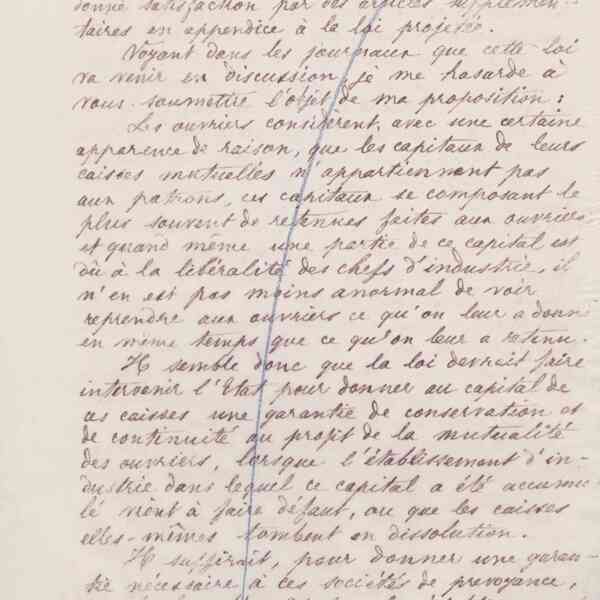 donné satisfaction par des articles supplémen-
taires en appendice à la loi projetée.
Voyant dans les journaux que cette loi
va venir en discussion, je me hasarde à
vous soumettre l'objet de ma proposition :
Les ouvriers considèrent, avec une certaine
apparence de raison, que les capitaux de leurs
caisses mutuelles n'appartiennent pas
aux patrons, ces capitaux se composant le
plus souvent de retenues faites aux ouvriers
et quand même une partie de ce capital est
dû à la libéralité des chefs d'industrie, il
n'en est pas moins anormal de voir
reprendre aux ouvriers ce qu'on leur a donné
en même temps que ce qu'on leur a retenu.
Il semble donc que la loi devrait faire
intervenir l'Etat pour donner au capital de
ces caisses une garantie de conservation et
de continuité au profit de la mutualité
des ouvriers, lorsque l'établissement d'in-
dustrie dans lequel ce capital a été accumu-
lé vient à faire défaut, ou que les caisses
elles-mêmes tombent en dissolution.
Il suffirait, pour donner une garan-
tie nécessaire à ces sociétés de prévoyance,